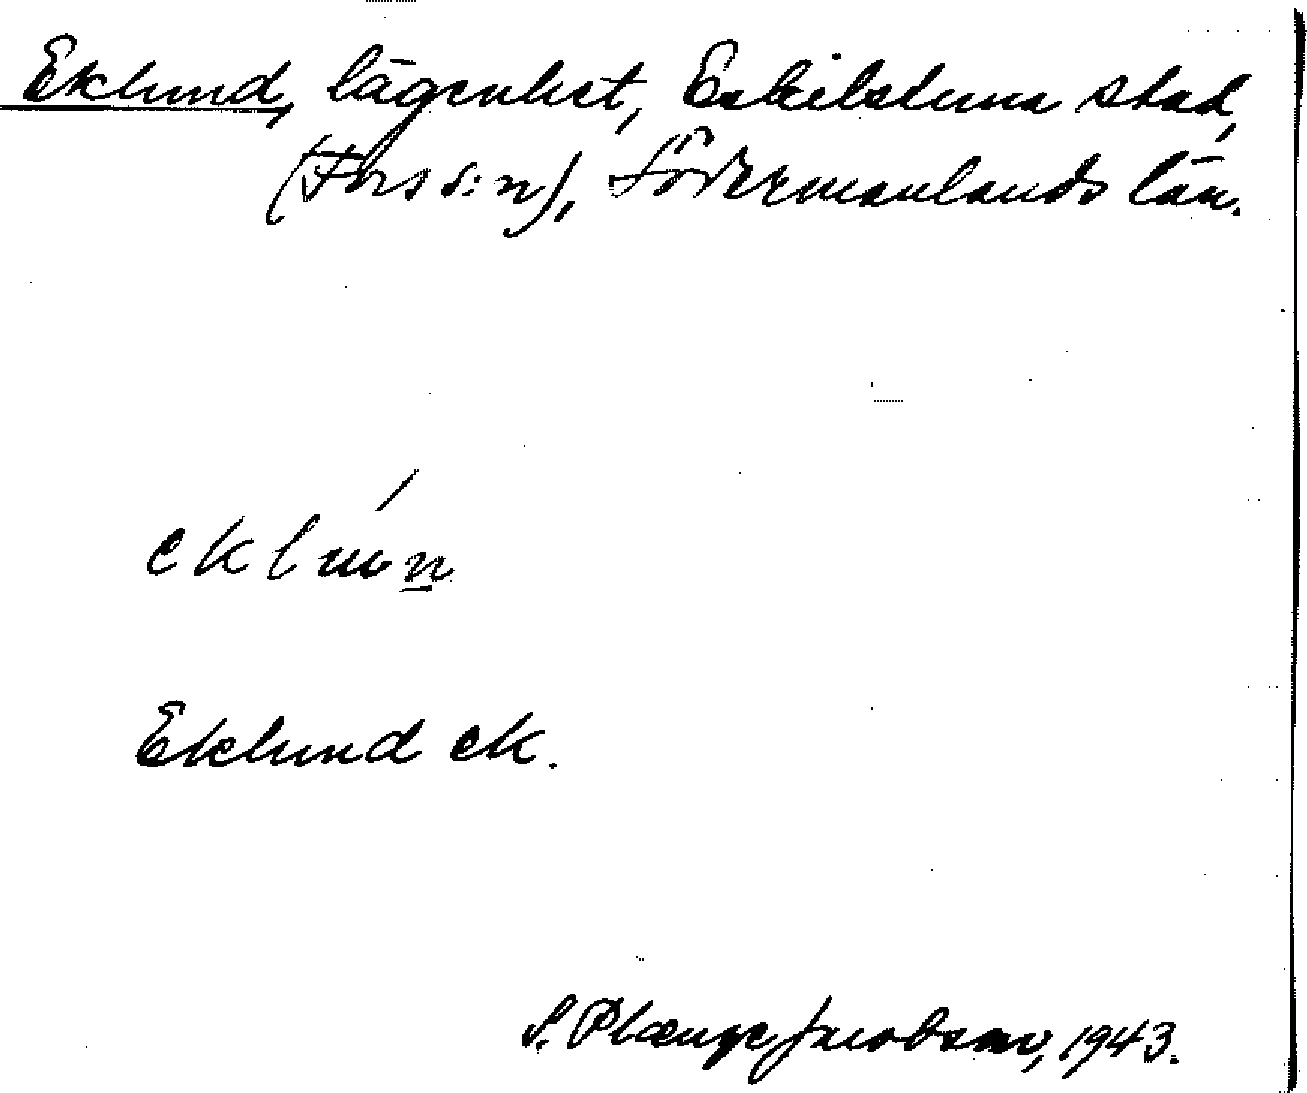 Eklund, lägenhet, Eskilstuna stad,
(Fors s:n), Södermanlands län.
Eklund ek.
S. Plænge Jacobson, 1943.